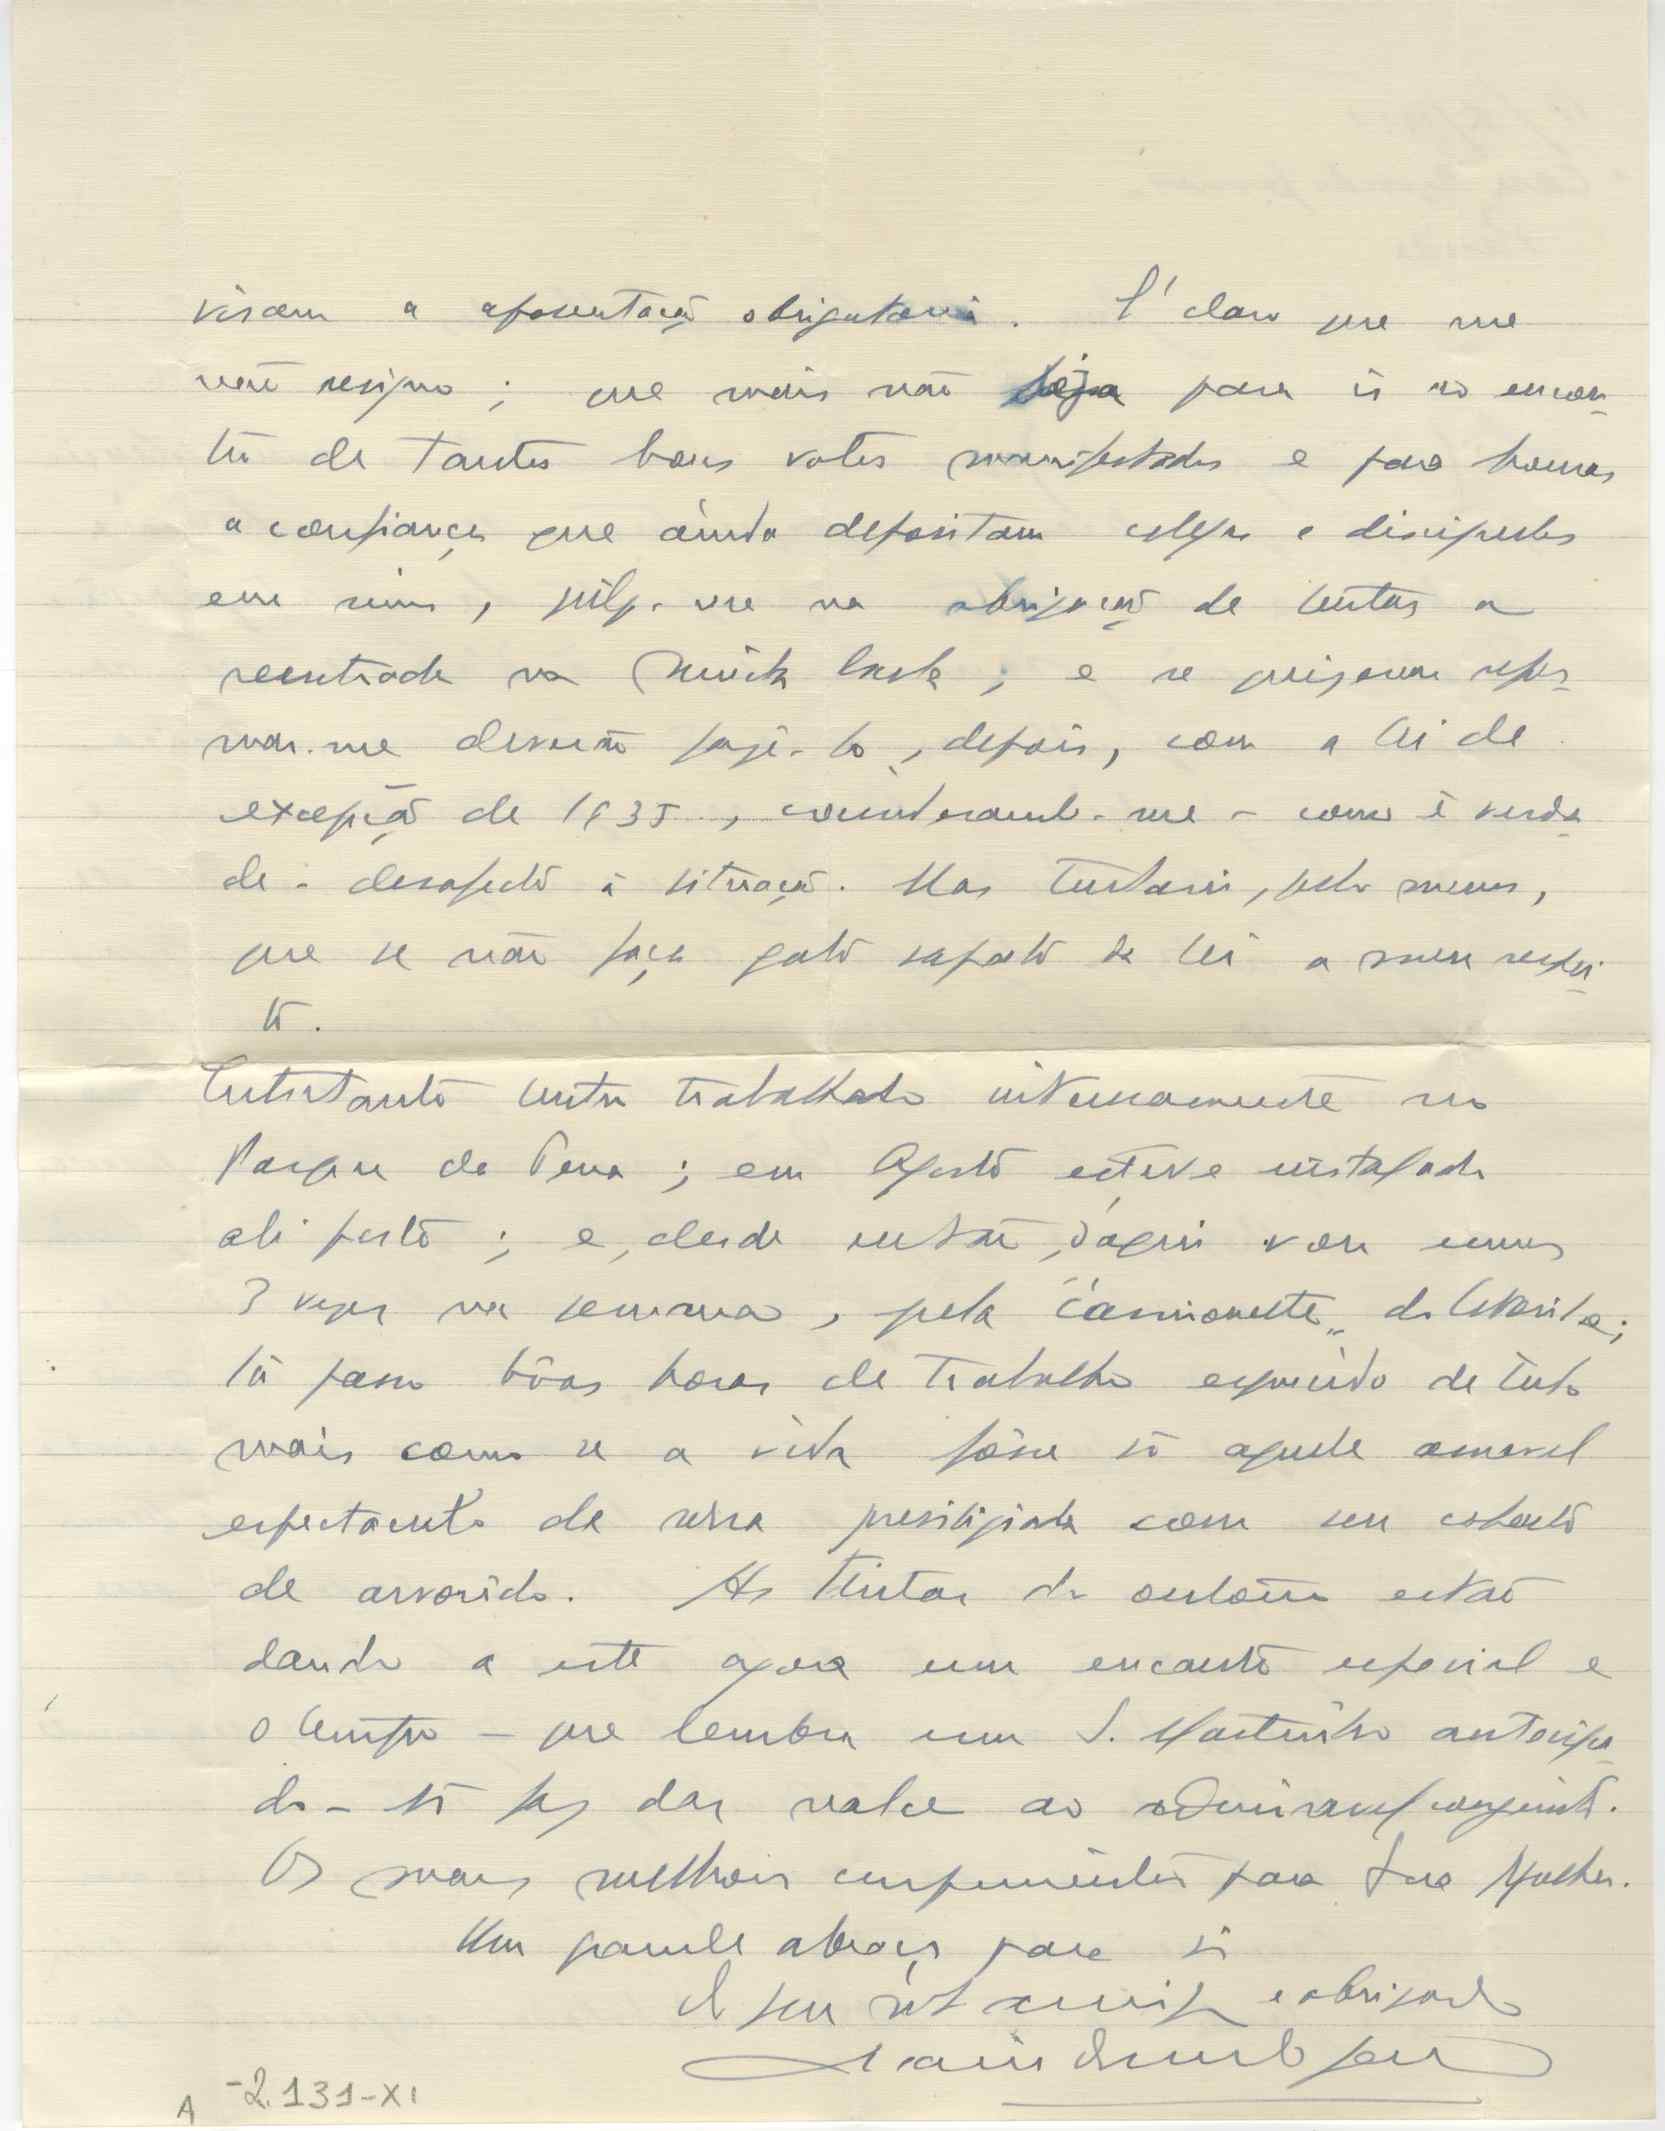 visam a aposentação obrigatoria. E' claro que me
não resigno; que mais não seja para ir ao encon-
tro de tantos bons votos manifestados e para honrar
a confiança que ainda depositam colegas e discipulos
em mim, julgo-me na obrigação de tentar a
reentrada na Minha Escola; e se quizerem refor-
mar-me deverão fazê-lo, depois, com a lei de
excepção de 1935, considerando-me - como é verda
de - desafecto á situação. Mas tentarei, pelo menos,
que se não faça gato sapato da lei a meu respei-
to.
Entretanto tenho trabalhado intensamente no
Parque da Pena; em Agosto estive instalado
ali perto; e, desde então, d'aqui vou umas
3 vezes na semana, pela "camionette" do Estoril;
lá passo bôas horas de trabalho esquecido de tudo
mais como se a vida fôsse só aquele amavel
espectaculo da serra prestigiada com seu coberto
de arvorêdo. As tintas do outôno estão
dando a este agora um encanto especial e
o tempo - que lembra um S. Martinho antecipa-
do - só faz dar realce ao admiravel conjunto.
Os meus melhores cumprimentos para Sua Mulher.
Um grande abraço para si
do seu amigo e obrigado